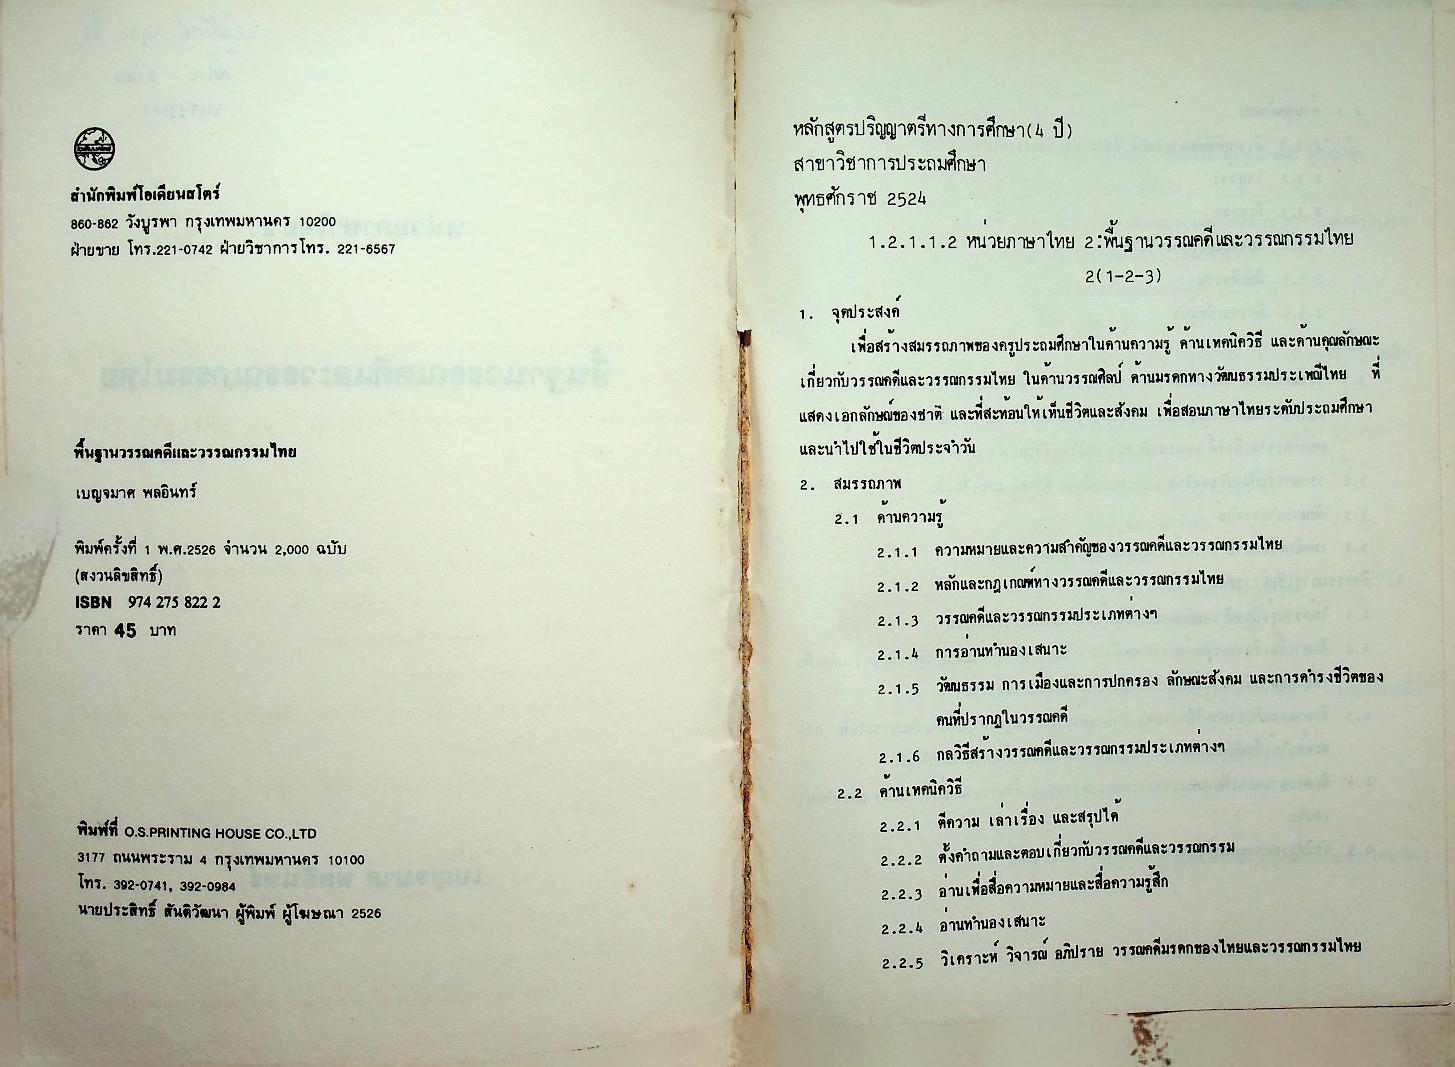 สำนักพิมพ์โอเดียนสโตร์
860-862 วังบูรพา กรุงเทพมหานคร 10200
ฝ่ายขาย โทร.221-0742 ฝ่ายวิชาการโทร. 221-6567
พื้นฐานวรรณคดีและวรรณกรรมไทย
เบญจมาศ พลอินทร์
พิมพ์ครั้งที่ 1 พ.ศ.2526 จำนวน 2,000 ฉบับ
(สงวนลิขสิทธิ์)
ISBN 974 275 822 2
ราคา 45 บาท
พิมพ์ที่ O.S.PRINTING HOUSE CO.,LTD
3177 ถนนพระราม 4 กรุงเทพมหานคร 10100
โทร. 392-0741, 392-0984
นายประสิทธิ์ สันติวัฒนา ผู้พิมพ์ ผู้โฆษณา 2526
หลักสูตรปริญญาตรีทางการศึกษา(4 ปี)
สาขาวิชาการประถมศึกษา
พุทธศักราช 2524
1.2.1.1.2 หน่วยภาษาไทย 2:พื้นฐานวรรณคดีและวรรณกรรมไทย
2(1-2-3)
1. จุดประสงค์
เพื่อสร้างสมรรถภาพของครูประถมศึกษาในด้านความรู้ ด้านเทคนิควิธี และด้านคุณลักษณะ
เกี่ยวกับวรรณคดีและวรรณกรรมไทย ในด้านวรรณศิลป์ ด้านมรดกทางวัฒนธรรมประเพณีไทย ที่
แสดงเอกลักษณ์ของชาติ และที่สะท้อนให้เห็นชีวิตและสังคม เพื่อสอนภาษาไทยระดับประถมศึกษา
และนำไปใช้ในชีวิตประจำวัน
2. สมรรถภาพ
2.1 ด้านความรู้
2.1.1 ความหมายและความสำคัญของวรรณคดีและวรรณกรรมไทย
2.1.2 หลักและกฎเกณฑ์ทางวรรณคดีและวรรณกรรมไทย
2.1.3 วรรณคดีและวรรณกรรมประเภทต่างๆ
2.1.4 การอ่านทำนองเสนาะ
2.1.5 วัฒนธรรม การเมืองและการปกครอง ลักษณะสังคม และการดำรงชีวิตของ
คนที่ปรากฏในวรรณคดี
2.1.6 กลวิธีสร้างวรรณคดีและวรรณกรรมประเภทต่างๆ
2.2 ด้านเทคนิควิธี
2.2.1 ตีความ เล่าเรื่อง และสรุปได้
2.2.2 ตั้งคำถามและตอบเกี่ยวกับวรรณคดีและวรรณกรรม
2.2.3 อ่านเพื่อสื่อความหมายและสื่อความรู้สึก
2.2.4 อ่านทำนองเสนาะ
2.2.5 วิเคราะห์ วิจารณ์ อภิปราย วรรณคดีมรดกของไทยและวรรณกรรมไทย